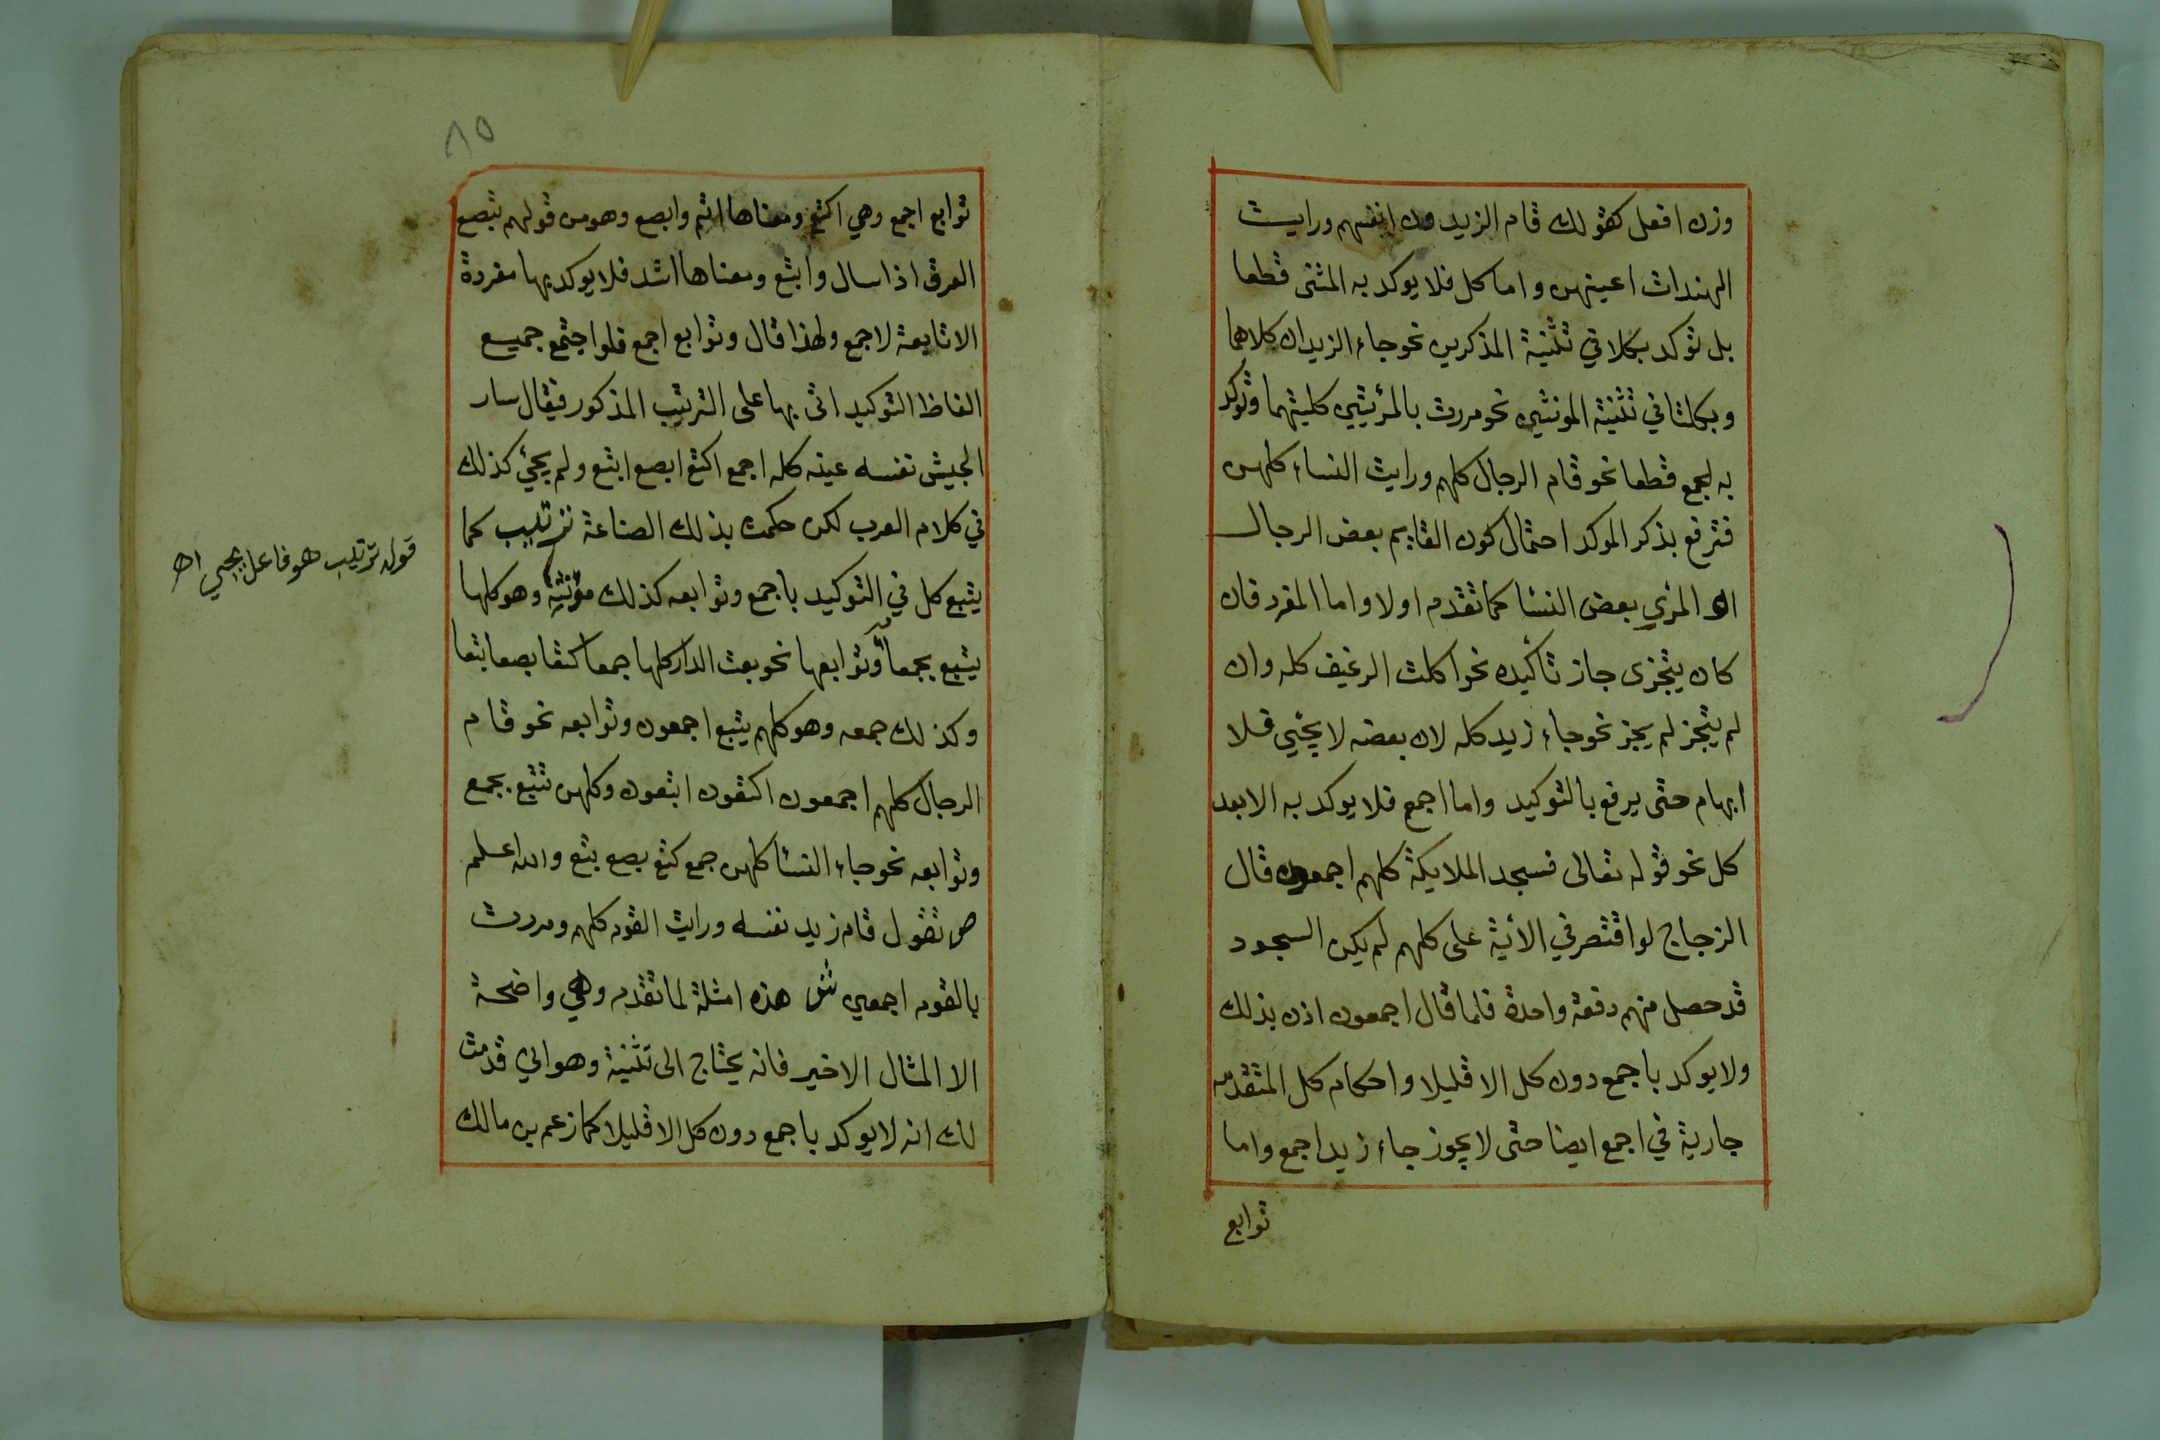 وزن افعل كقولك قام الزيدون انفسهم ورايت
الهندات اعينهن واما كل فلا يوكد به المثنى قطعا
بل توكد بكلا في تثنية المذكرين نحو جاء الزيدان كلاهما
وبكلتا في تثنية المونثين نحو مررت بالمرئيتين كليتهما وتوكد
به لجمع قطعا نحو قام الرجال كلهم ورايت النساء كلهن
فترفع بذكر الموكد احتمال كون القايم بعض الرجال
او المرئي بعض النسا كما تقدم اولا واما المفرد فان
كان يتجزى جاز تأكيده نحو اكلت الرغيف كله وان
لم يتجز لم يجز نحو جاء زيد كله لان بعضه لا يجئي فلا
ابهام حتى يرفع بالتوكيد واما اجمع فلا يوكد به الا بعد
كل نحو قوله تعالى فسجد الملايكة كلهم اجمعون قال
الزجاج لو اقتصر في الأية على كلهم لم يكن السجود
قد حصل منهم دفعة واحدة فلما قال اجمعون اذن بذلك
ولا يوكد باجمع دون كل الا قليلا واحكام كل المتقدمه
جارية في اجمع ايضا حتى لا يجوز جاء زيد اجمع واما
توابع
٨٥
توابع اجمع وهي اكتع ومعناها اتم وابصع وهو من قولهم تبصع
العرق اذا سال وابتع ومعناها اشد فلا يوكد بها مفردة
الا تابعة لاجمع ولهذا قال وتوابع اجمع فلو اجتمع جميع
الفاظ التوكيد اتى بها على الترتيب المذكور فيقال سار
الجيش نفسه عينه كله اجمع اكتع ابصع ابتع ولم يجئ كذلك
في كلام العرب لكن حكمت بذلك الصناعة ترتيب كما
يتبع كل في التوكيد باجمع وتوابعه كذلك مؤنثة وهو كلها
يتبع بجمعاء وتوابعها نحو بعت الدار كلها جمعا كتعا بصعا بتعا
وكذلك جمعه وهو كلهم يتبع اجمعون وتوابعه نحو قام
الرجال كلهم اجمعون اكتعون ابتعون وكلهن تتبع بجمع
وتوابعه نحو جاء النسا كلهن جمع كتع بصع بتع والله اعلم
ص تقول قام زيد نفسه ورايت القوم كلهم ومررت
بالقوم اجمعين ش هذه امثلة لما تقدم وهي واضحة
الا المثال الاخير فانه يحتاج الى تثنية وهو اني قدمت
لك انه لا يوكد باجمع دون كل الا قليلا كما زعم بن مالك
قوله ترتيب هو فاعل يجيي اهـ